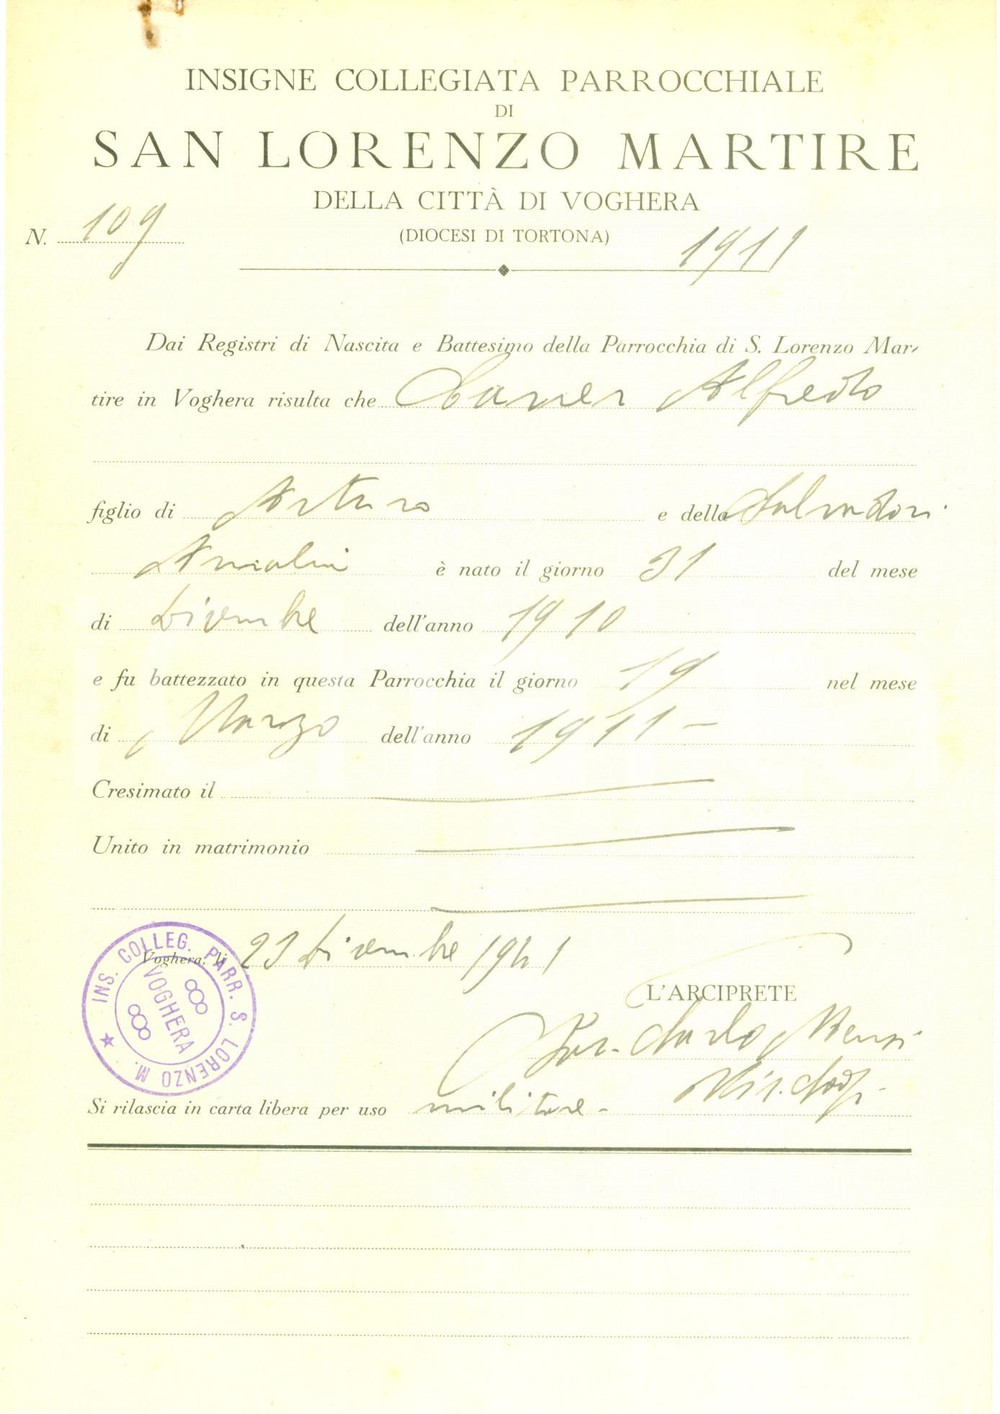 INSIGNE COLLEGIATA PARROCCHIALE
DI
SAN LORENZO MARTIRE
DELLA CITTÀ DI VOGHERA
N. 109
(DIOCESI DI TORTONA)
1911
Dai Registri di Nascita e Battesimo della Parrocchia di S. Lorenzo Mar-
tire in Voghera risulta che Alfredo
figlio di Arturo e della Salvadori
è nato il giorno 31 del mese
di Dicembre dell'anno 1910
e fu battezzato in questa Parrocchia il giorno 19 nel mese
di Marzo dell'anno 1911 -
Cresimato il
Unito in matrimonio
Voghera, li 23 Dicembre 1941
INS. COLLEG. PARR. S. LORENZO M.
VOGHERA
L'ARCIPRETE
Carlo
Si rilascia in carta libera per uso militare -